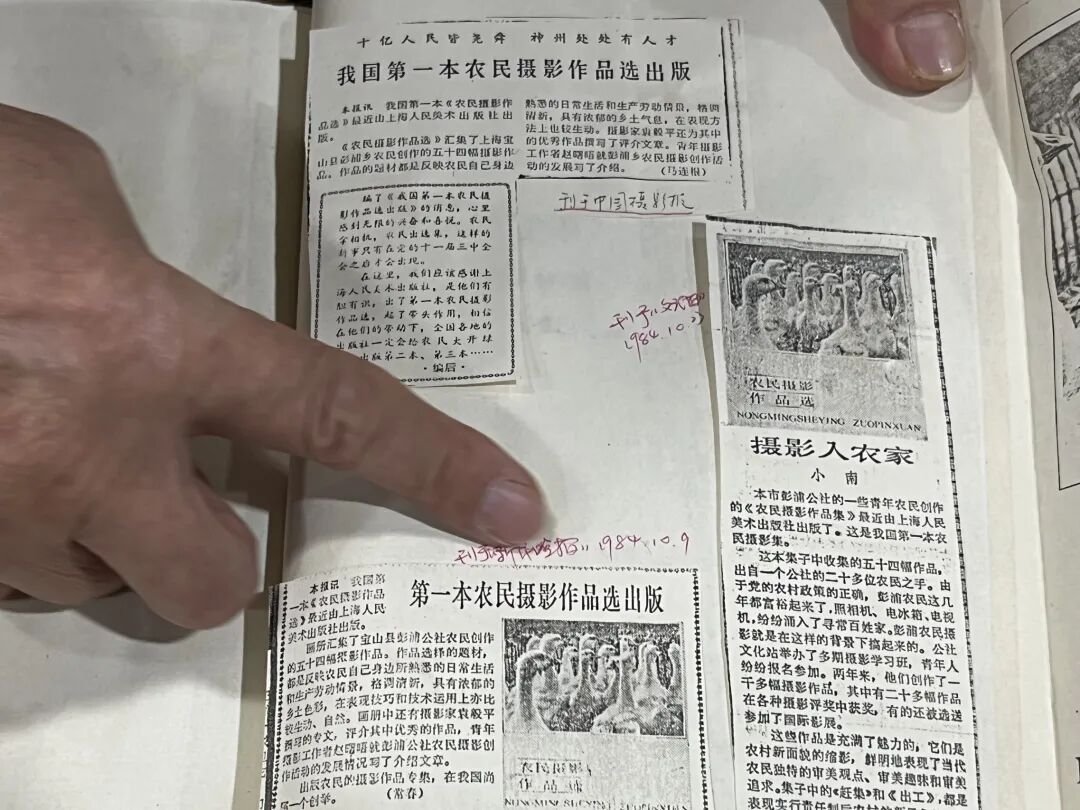 十亿人民皆尧舜 神州处处有人才
我国第一本农民摄影作品选出版
本报讯 我国第一本《农民摄影作
品选》最近由上海人民美术出版社出
版。
《农民摄影作品选》汇集了上海宝
山县彭浦乡农民创作的五十四幅摄影作
品。作品的题材都是反映农民自己身边
熟悉的日常生活和生产劳动情景,格调
清新,具有浓郁的乡土气息,在表现方
法上也较生动。摄影家袁毅平还为其中
的优秀作品撰写了评介文章。青年摄影
工作者赵曙唔就彭浦乡农民摄影创作活
动的发展写了介绍。 (马连根)
编了《我国第一本农民摄
影作品选出版》的消息,心里
感到无限的兴奋和喜悦。农民
拿相机,农民出选集,这样的
新事只有在党的十一届三中全
会之后才会出现。
在这里,我们应该感谢上
海人民美术出版社,是他们有
胆有识,出了第一本农民摄影
作品选,起了带头作用,相信
在他们的带动下,全国各地的
出版社一定会给农民大开绿
出版第二本、第三本……
·编后·
刊于中国摄影报
刊于
1984.10.23
农民摄影
作品选
NONGMINGSHEYING ZUOPINXUAN
摄影入农家
小南
本市彭浦公社的一些青年农民创作
的《农民摄影作品集》最近由上海人民
美术出版社出版了。这是我国第一本农
民摄影集。
这本集子中收集的五十四幅作品,
出自一个公社的二十多位农民之手。由
于党的农村政策的正确,彭浦农民这几
年都富裕起来了,照相机、电冰箱、电视
机,纷纷涌入了寻常百姓家。彭浦农民摄
影就是在这样的背景下搞起来的。公社
文化站举办了多期摄影学习班,青年人
纷纷报名参加。两年来,他们创作了一
千多幅摄影作品,其中有二十多幅作品
在各种摄影评奖中获奖,有的还被选送
参加了国际影展。
这些作品是充满了魅力的,它们是
农村新面貌的缩影,鲜明地表现了当代
农民独特的审美观点、审美趣味和审美
追求。集子中的《赶集》和《出工》,都是
刊于新民晚报 1984.10.9
第一本农民摄影作品选出版
本报讯 我国第
一本《农民摄影作品
选》最近由上海人民
美术出版社出版。
画册汇集了宝山县彭浦公社农民创作
的五十四幅摄影作品。作品选择的题材,
都是反映农民自己身边所熟悉的日常生活
和生产劳动情景,格调清新,具有浓郁的
乡土色彩,在表现技巧和技术运用上亦比
较生动、自然。画册中还有摄影家袁毅平
撰写的专文,评介其中优秀的作品,青年
摄影工作者赵曙唔就彭浦公社农民摄影创
作活动的发展情况写了介绍文章。
出版农民的摄影作品专集,在我国尚
属一个创举。 (常春)
农民摄影
作品选